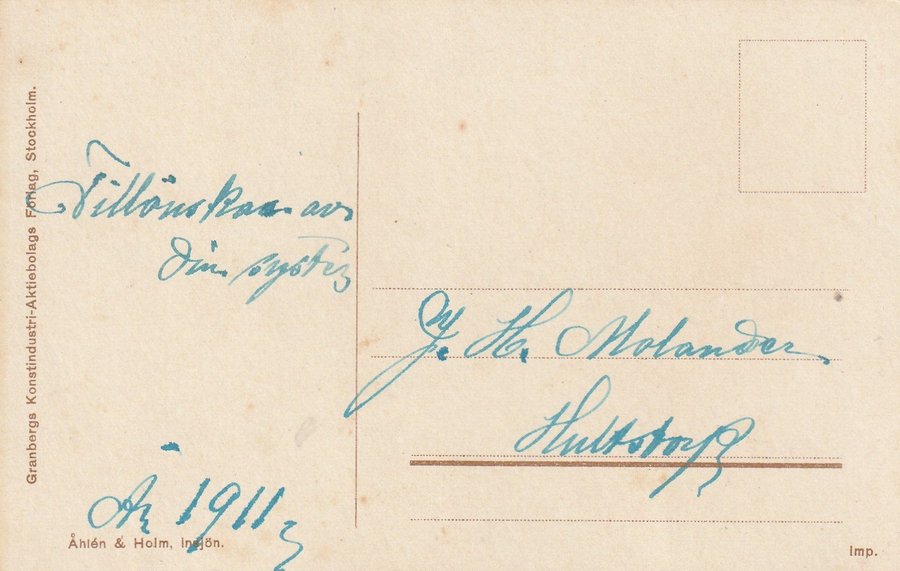 Granbergs Konstindustri-Aktiebolags Förlag, Stockholm.
Tillönskas av
din syster
År 1911
Åhlén & Holm, Insjön.
J. H. Molander
Hultstorp
Imp.